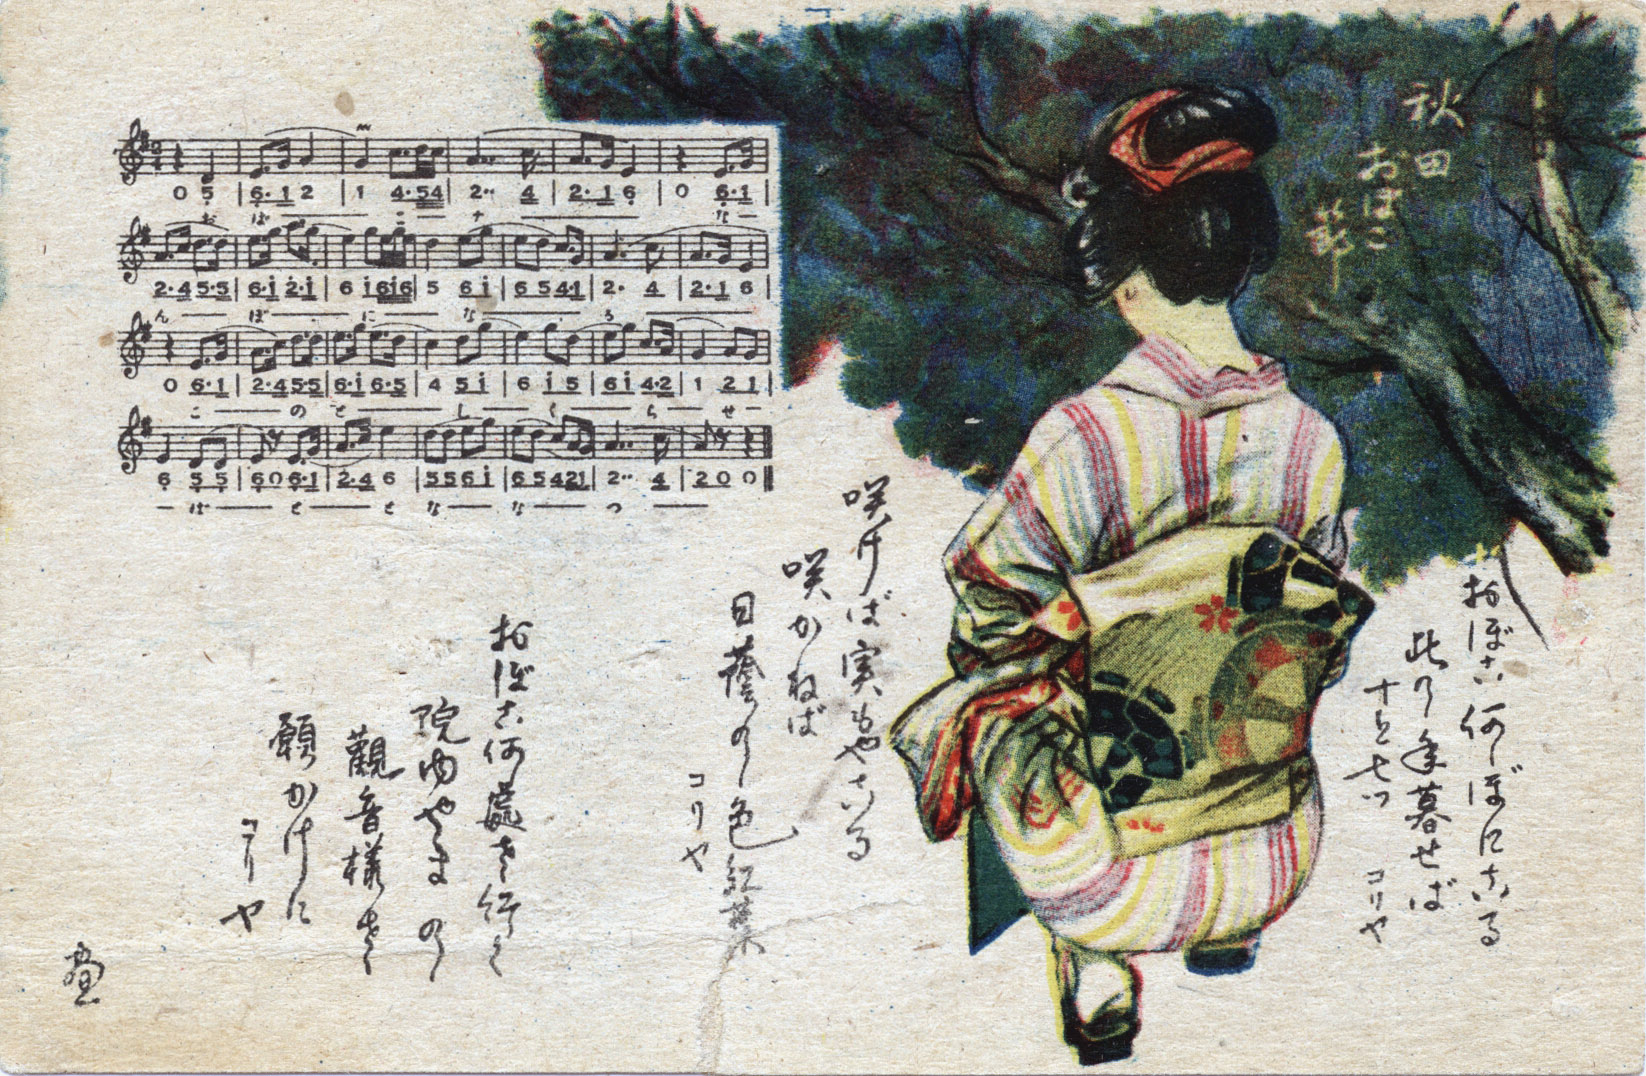 秋田
おばこ
節
0 5 | 6·1 2 | 1 4·54 | 2·· 4 | 2·1 6 | 0 6·1 |
お ば こ ナ な
2·4 5·5 | 6·i 2·i | 6 i6i6 | 5 6i | 6 5 41 | 2· 4 | 2·1 6 |
ん ぼ に な る
0 6·1 | 2·4 5·5 | 6·i 6·5 | 4 5i | 6 i5 | 6i 4·2 | 1 21 |
こ の と し く ら せ
6 55 | 60 6·1 | 2·4 6 | 5561 | 65421 | 2·· 4 | 200 ||
ば と と な な つ
おばこ何んぼになる
此の年暮せば
十と七ツ コリヤ
咲けば実もやなる
咲かねば
日蔭の色紅葉
コリヤ
おばこ何處さ行く
院内やまの
觀音様さ
願かけに
コリヤ